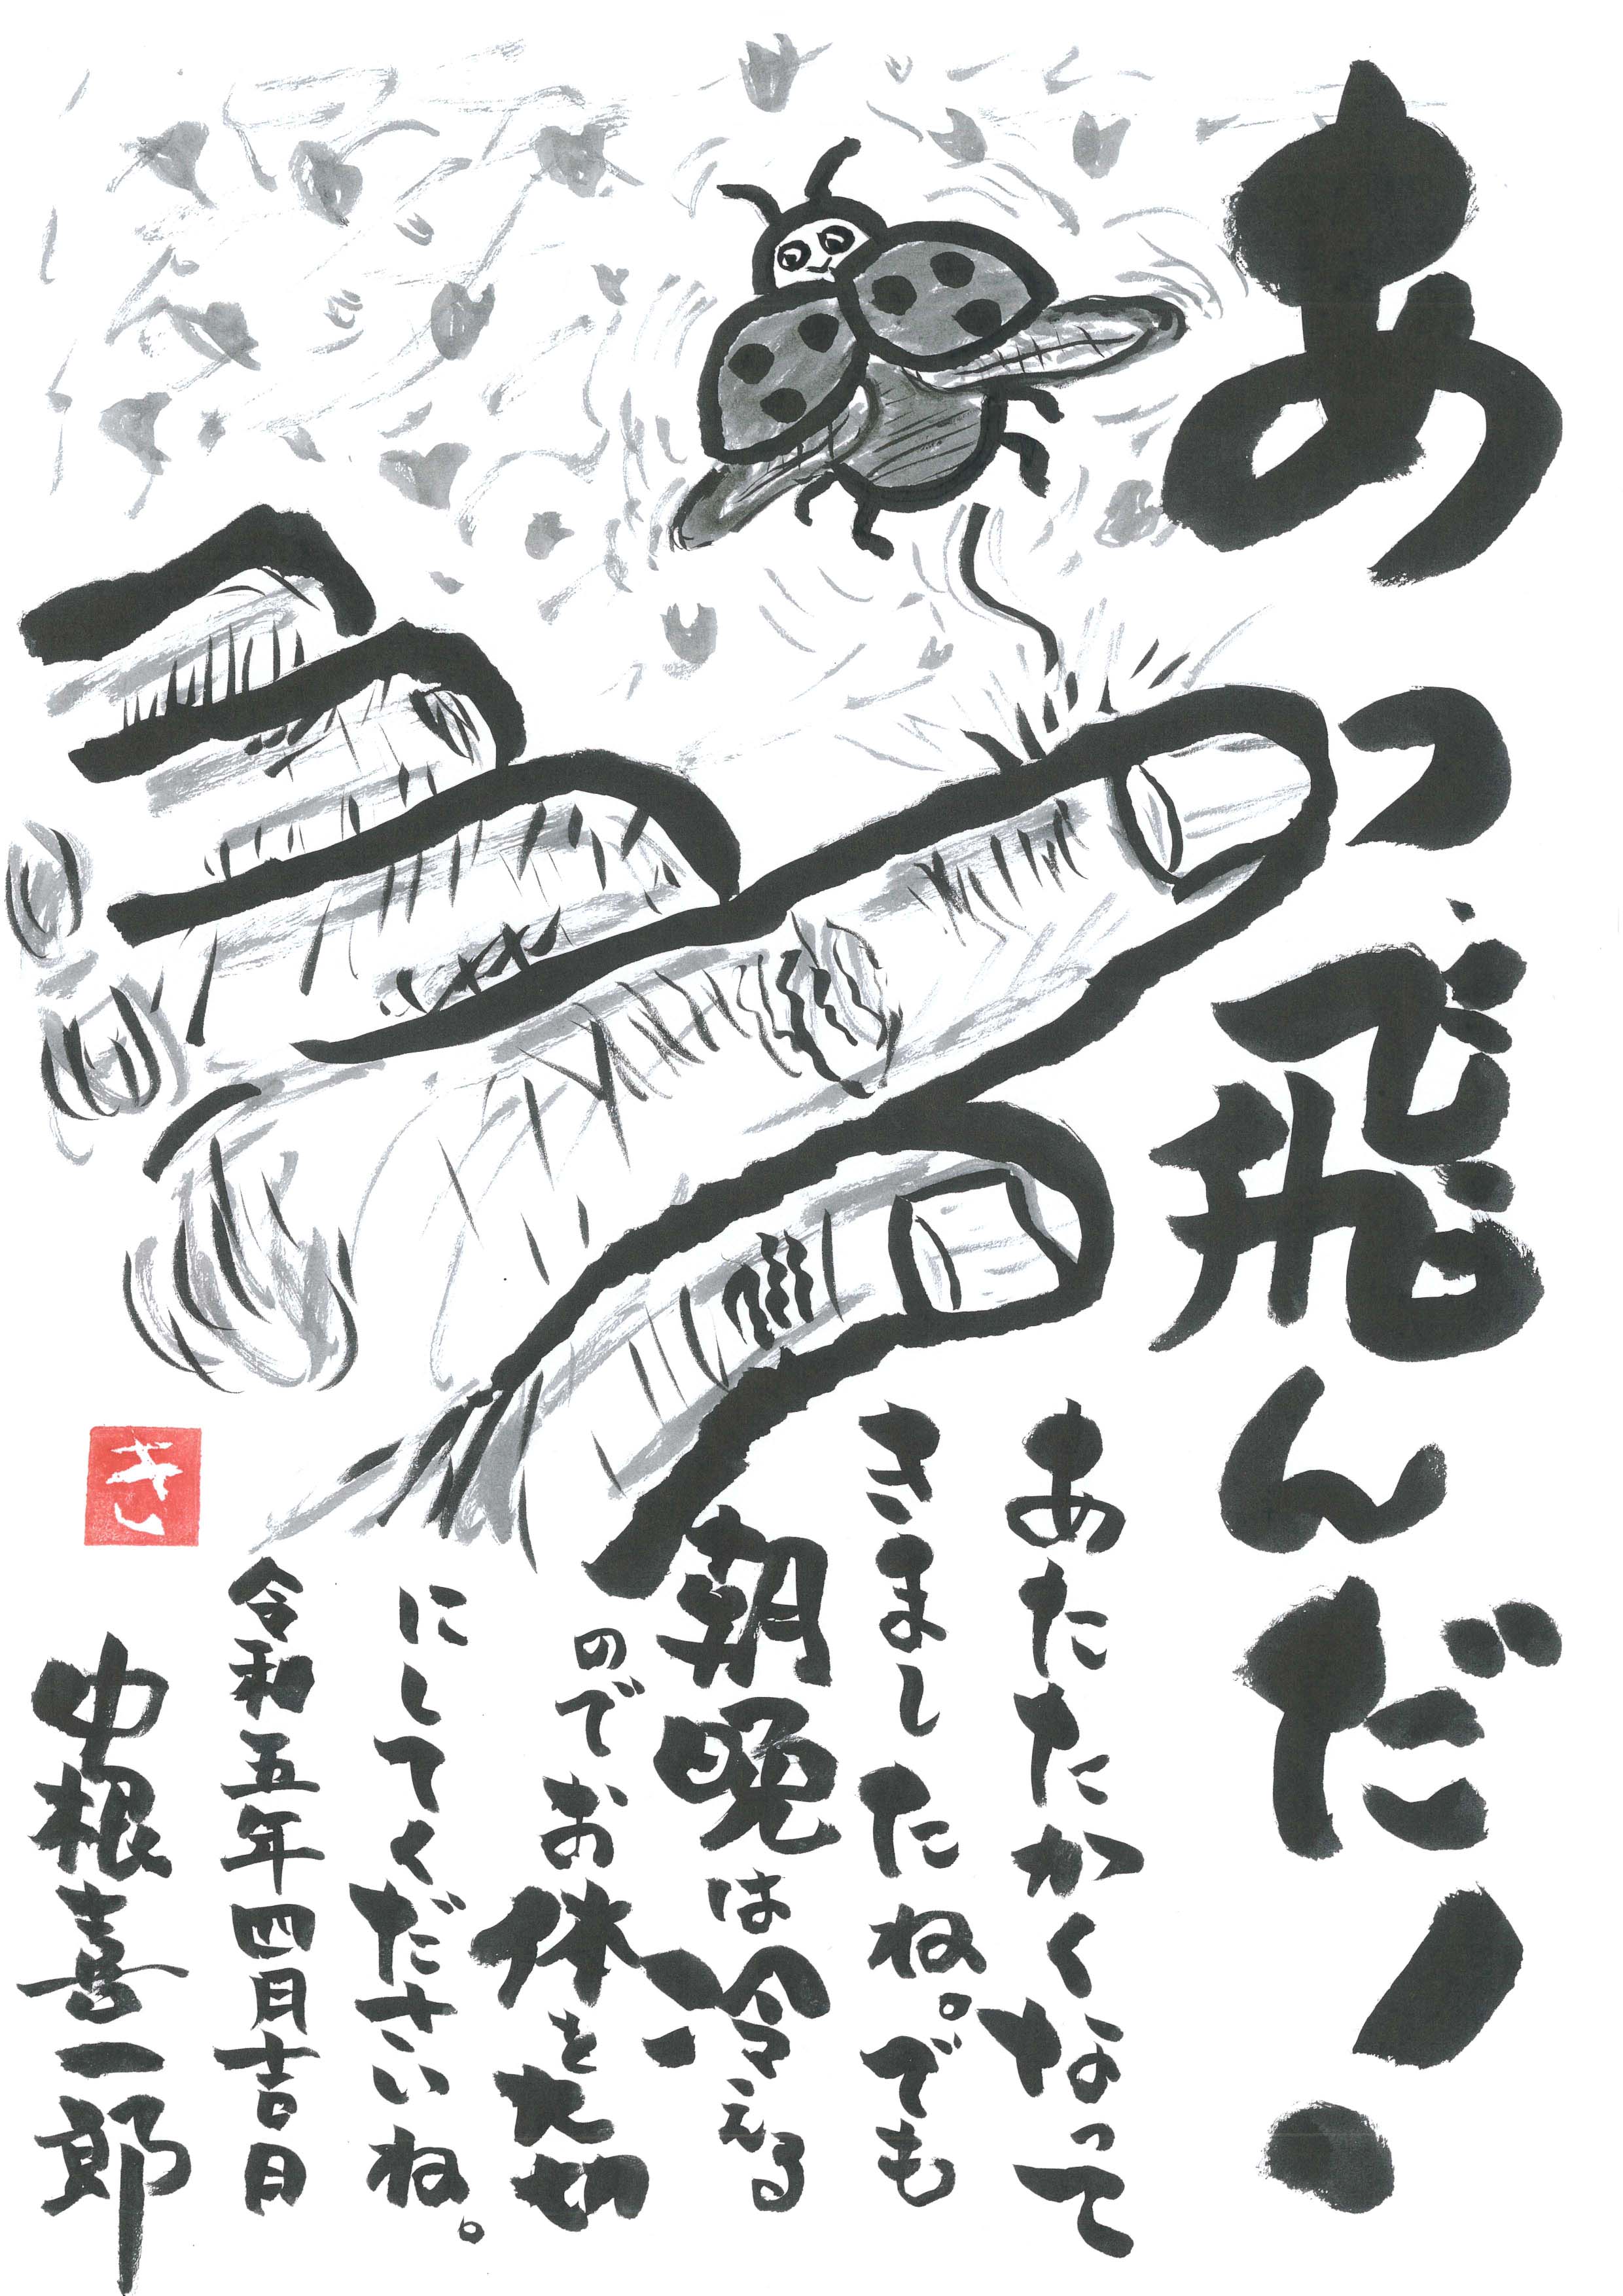 あっ、飛んだ！
あたたかくなって
きましたね。でも
朝晩は冷える
のでお体を大切
にしてくださいね。
令和五年四月吉日
中根喜一郎
きい